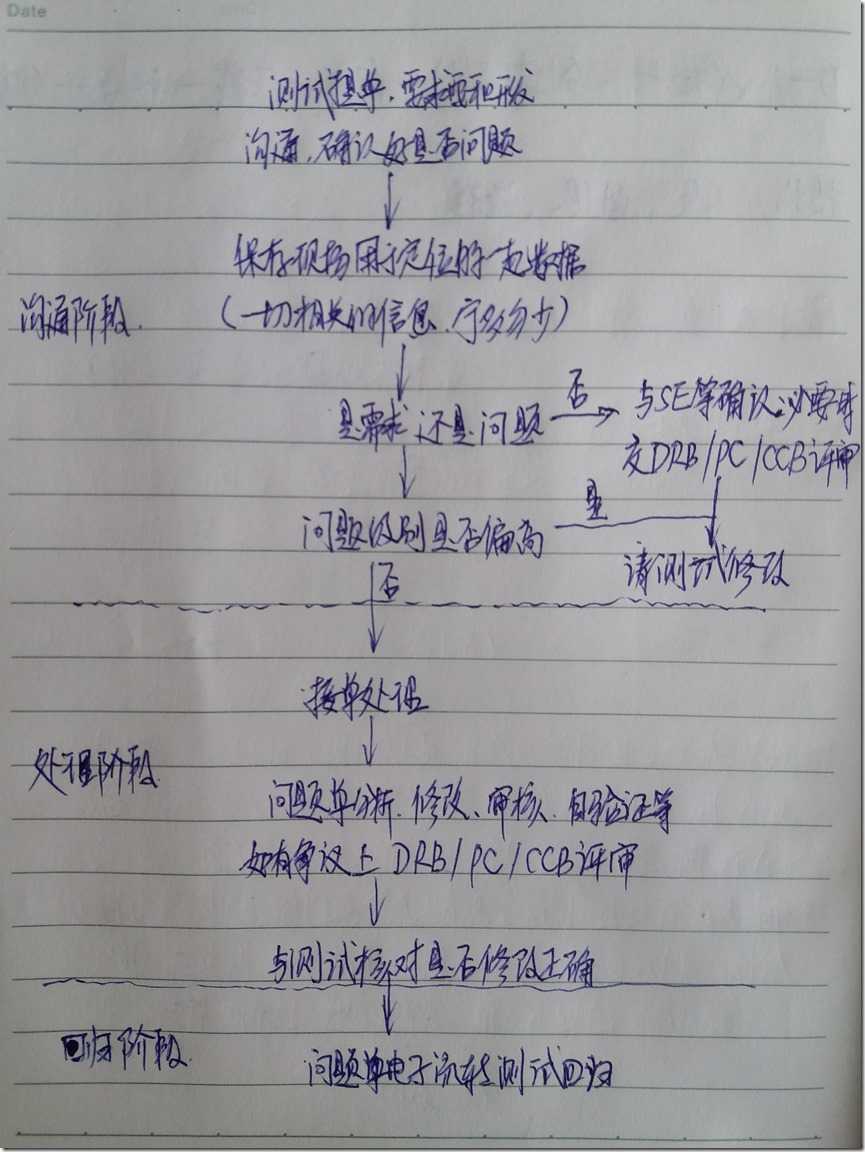 Date
测试提单,需求要和开发
沟通,确认好是否问题
保存现场用于定位的一起数据
沟通阶段.
(一切相关的信息,宁多勿少)
是需求还是问题
否
与SE等确认,必要时
交DRB/PC/CCB评审
问题级别是否偏高
是
请测试修改
否
接单处理
处理阶段
问题单分析、修改、审核、自验证等
如有争议上DRB/PC/CCB评审
与测试核对是否修改正确
回归阶段
问题单电子流转测试回归